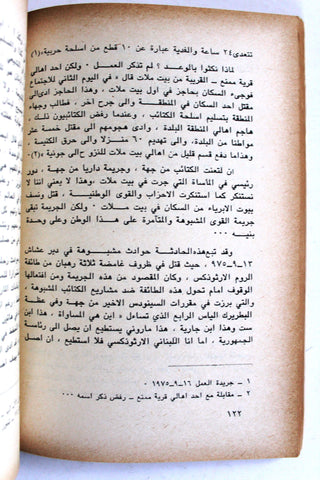 تتعدى ٢٤ ساعة والفدية عبارة عن ١٠ قطع من اسلحة حربية»(١)
لماذا نكثوا بالوعد ؟ لم تذكر العمل ٠ ولكن احد اهالي
قرية ممنع ـ القريبة من بيت ملات قال « في اليوم الثاني للاجتماع
فوجىء السكان بحاجز في اول بيت ملات ٠ وهذا الحاجز ادى الى
مقتل احد السكان في المنطقة والى جرح اخر ٠ فطالب وجهاء
المنطقة بتسليم اسلحة الكتائب ، وعندما رفض الكتائبيون ذلك
هاجم اهالي المنطقة البلدة ، وادى هجومهم الى مقتل خمسة عشر
مواطنا من البلدة ، والى تهديم ٦٠ منزلا والى حرق الكنيسة ٠
وهذا ما دفع قسم قليل من اهالي بيت ملات للنزوح الى جونية »(٢)٠
ان لتعنت الكتائب من جهة ، وقرية داريا من جهة ، دور
رئيسي في الماساة التي جرت في بيت ملات ٠ وهذا لا يعني اننا لا
نستنكر كما استنكرت الاحزاب والقوى الوطنية ٠٠ قصف
بيوت الابرياء من السكان في بيت ملات ٠ ولكن الجريمة تبقى
جريمة القوى المشبوهة والمتآمرة على هذا الوطن وعلى وحدة
بنيه ٠٠٠
وقد تبع هذه الحادثة حوادث مشبوهة في دير عشاش
١٢ـ٩ـ٩٧٥ ، حيث قتل في ظروف غامضة ثلاثة رهبان من طائفة
الروم الارثوذكس ٠ وكان المقصود من هذه الجريمة ومن افتعالها
الوقوف امام تحول هذه الطائفة ضد مشاريع الكتائب المشبوهة ،
والتي برزت في مقررات السينودس الاخير من جهة وفي عظة
البطريرك الياس الرابع الذي تساءل « ابن هي المساواة ، هذا ابن
ست وهذا ابن جارية ، هذا ماروني يستطيع ان يصل الى رئاسة
الجمهورية ، اما انا اللبناني الارثوذكسي فلا استطيع ، ان اصل
١ ـ جريدة العمل ١٦ـ٩ـ١٩٧٥ ٠
٢ ـ مقابلة مع احد اهالي قرية ممنع ـ رفض ذكر اسمه ٠٠٠
١٢٢